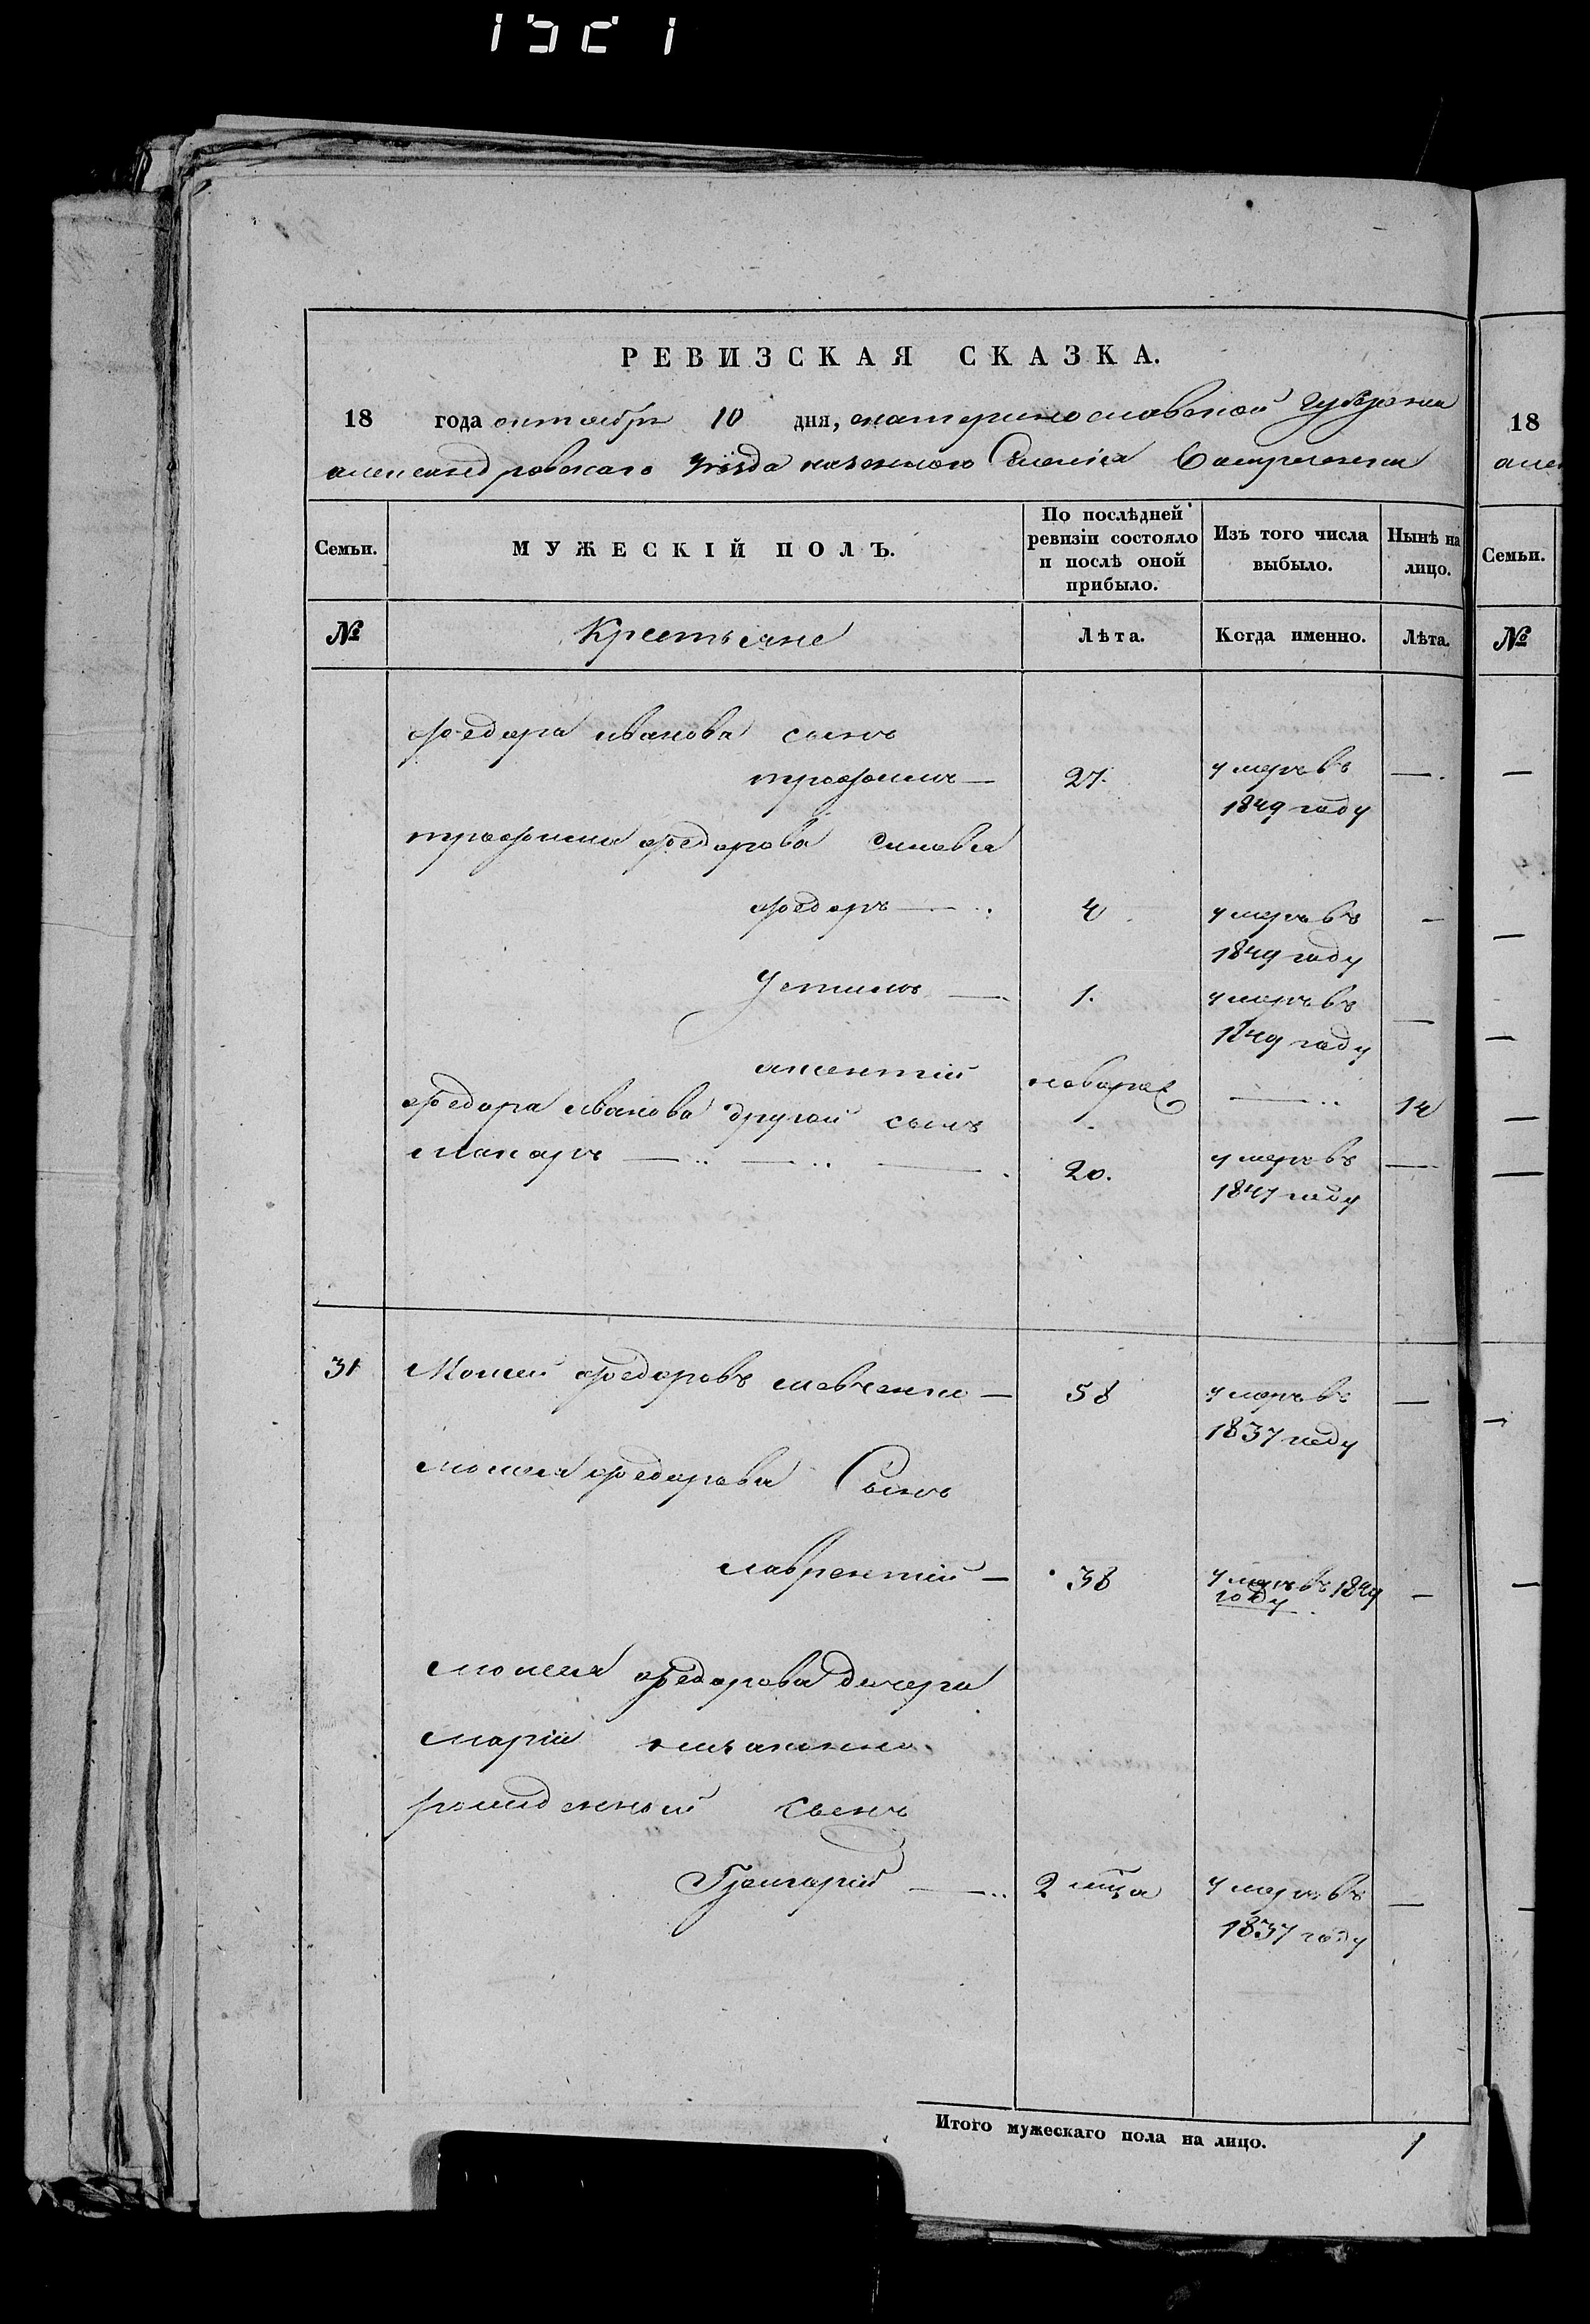 РЕВИЗСКАЯ СКАЗКА.
18 года октября 10 дня, екатеринославской Губерніи
александровскаго уѣзда казенного Селенія
Семьи.
МУЖЕСКІЙ ПОЛЪ.
По послѣдней ревизіи состояло и послѣ оной прибыло.
Изъ того числа выбыло.
Нынѣ на лицо.
№ Крестьяне Лѣта. Когда именно. Лѣта.
федора иванова сынъ
трофимъ — 27. умеръ въ —
1849 году
трофима федорова Сыновья
федоръ — 4 умеръ въ —
1849 году
Устинъ — 1. умеръ въ —
1849 году
аксентій новорож — 14
федора иванова другой сынъ
макаръ — 20. умеръ въ —
1847 году
31 Мосей федоровъ шевченко — 58 умеръ въ —
1837 году
мосея федорова Сынъ
лаврентій — 38 умеръ въ 1849 —
году
мосея федорова дочери
маріи незаконно
рожденный сынъ
Григорій — 2 мца умеръ въ —
1837 году
Итого мужескаго пола на лицо. 1
18
Семьи.
№